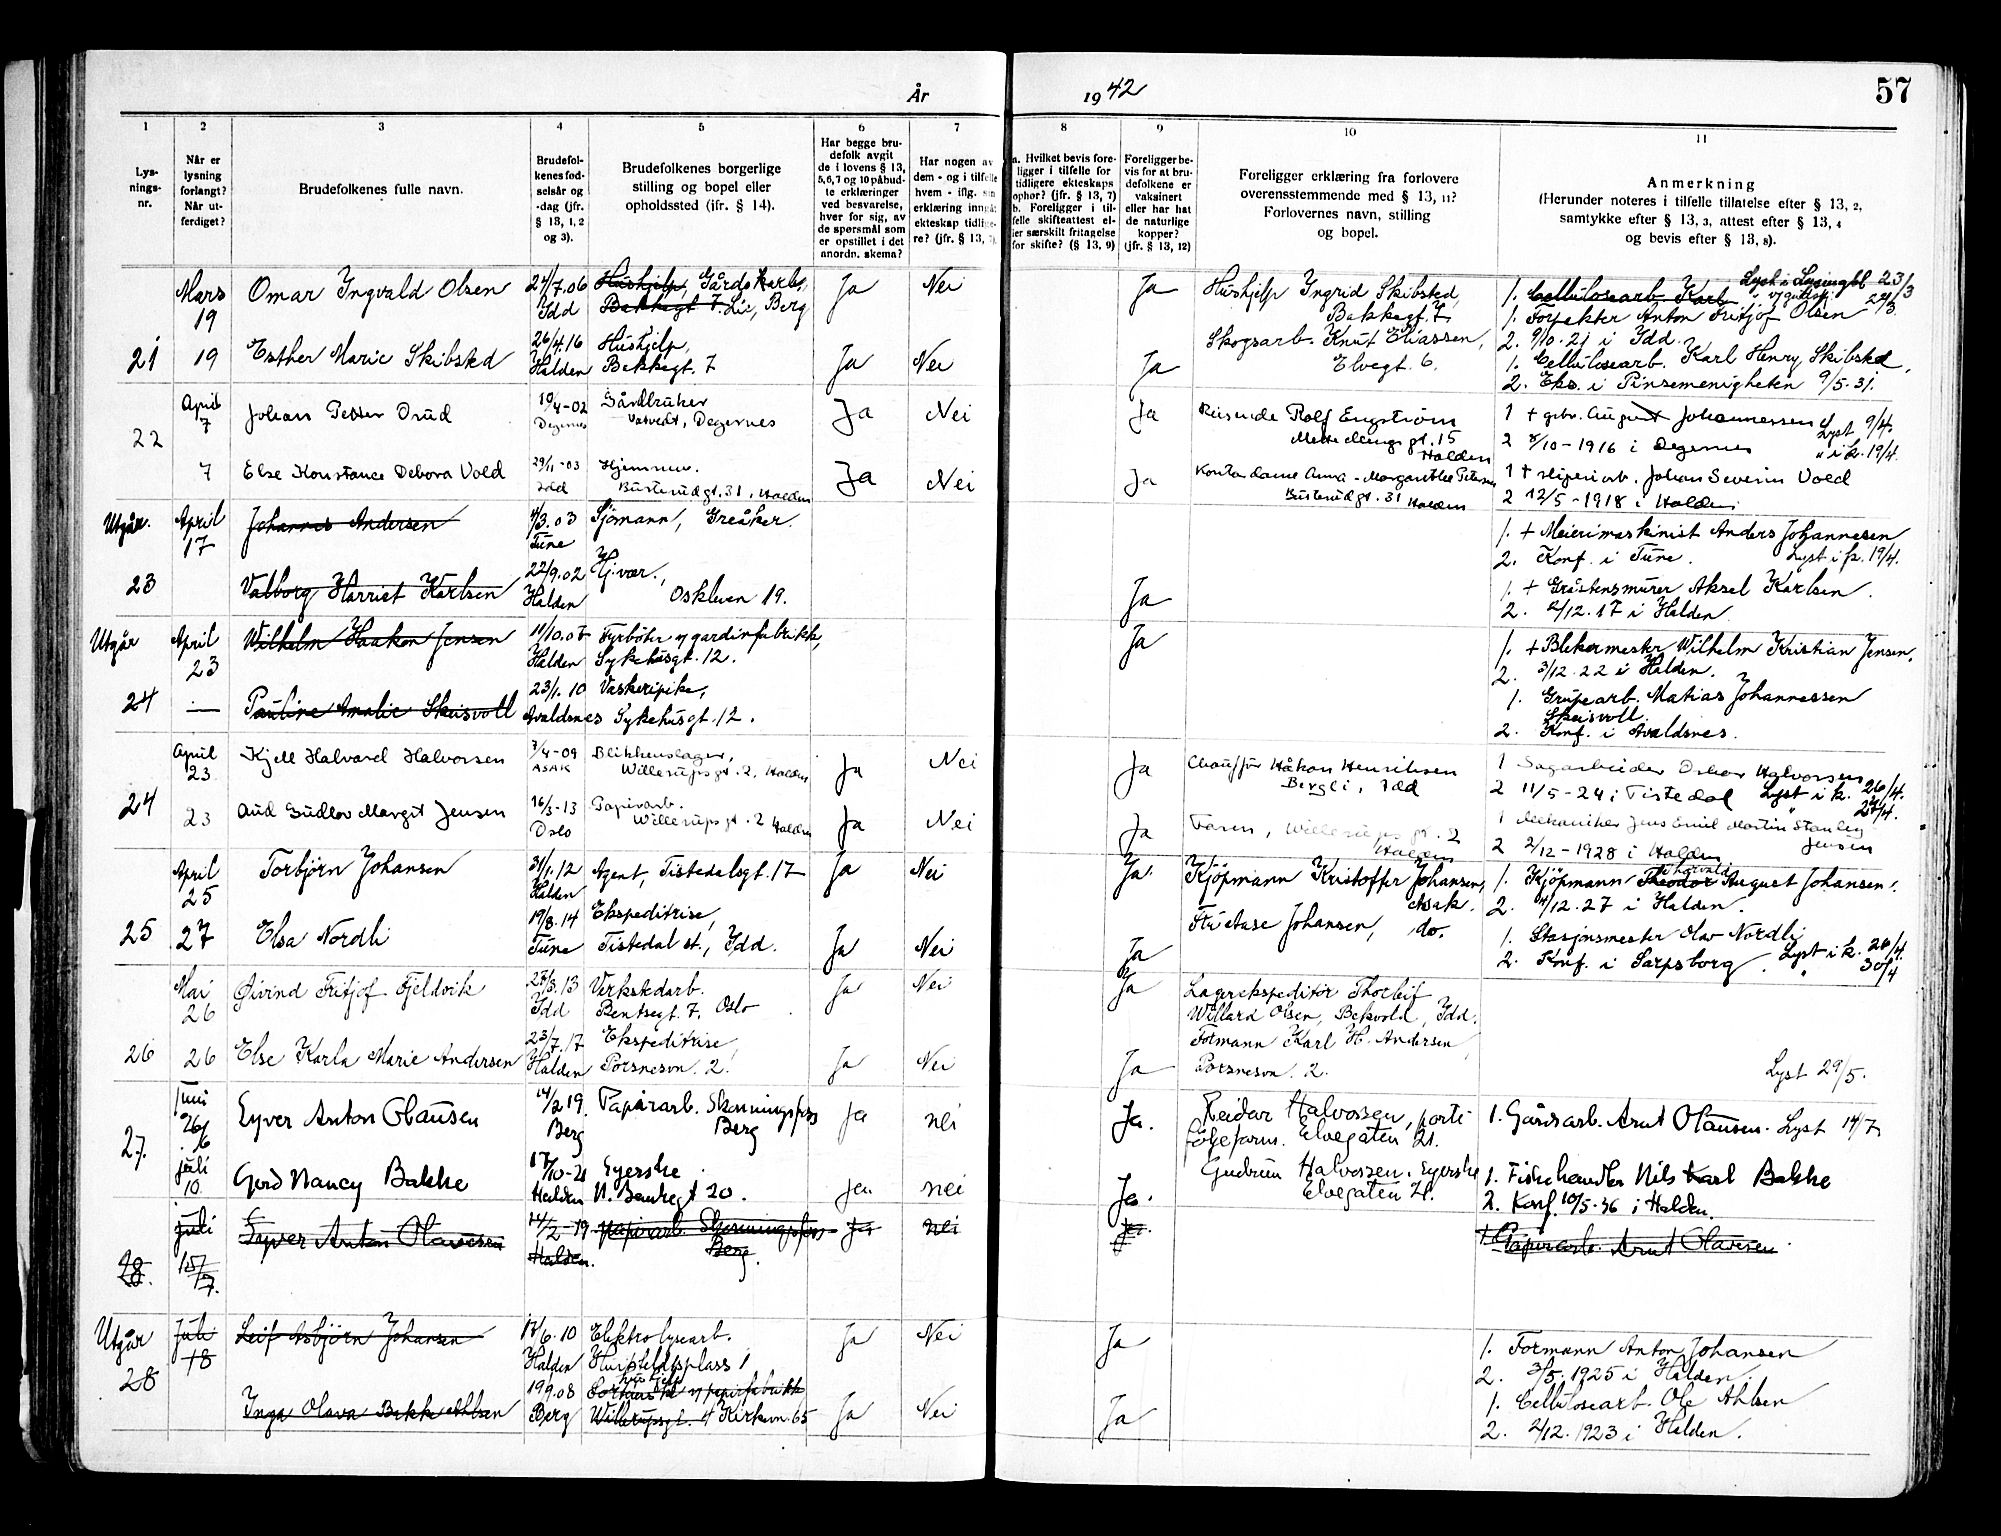 År
1942
57
1
2
3
4
5
6
7
8
9
10
11
Lys-
nings-
nr.
Når er
lysning
forlangt?
Når ut-
ferdiget?
Brudefolkenes fulle navn.
Brudefol-
kenes fød-
selsår og
-dag (jfr.
§ 13, 1, 2
og 3).
Brudefolkenes borgerlige
stilling og bopel eller
opholdssted (ifr. § 14).
Har begge bru-
defolk avgit
de i lovens § 13,
5, 6, 7 og 10 påbud-
te erklæringer
ved besvarelse,
hver for sig, av
de spørsmål som
er opstillet i det
anordn. skema?
Har nogen av
dem - og i tilfelle
hvem - iflg. sin
erklæring inngå
ekteskap tidlige-
re? (jfr. § 13,
a. Hvilket bevis fore-
ligger i tilfelle for
tidligere ekteskaps
ophør? (jfr. § 13, 7)
b. Foreligger i til-
felle skifteattest el-
ler særskilt fritagelse
for skifte? (§ 13, 9)
Foreligger be-
vis for at bru-
defolkene er
vaksinert
eller har hat
de naturlige
kopper?
(jfr. § 13, 12)
Foreligger erklæring fra forlovere
overensstemmende med § 13, 11?
Forlovernes navn, stilling
og bopel.
Anmerkning
(Herunder noteres i tilfelle tillatelse efter § 13, 2,
samtykke efter § 13, 3, attest efter § 13, 4
og bevis efter § 13, 8).
Mars 19 Omar Ingvald Olsen 24/7.06 Idd Hushjelp, Gårdskarl,
Bakkegt 7. Berg Ja Nei Ja
Hushjelp Ingrid Skibsted,
Bakkegt. 7.
1. Cellulosearb. Karl Lyst i Lysingbl 23/3
1. Anton Fritjof Olsen
2. 9/10.21 i Idd.
21 19 Esther Marie Skibsted 26/4.16 Halden Hushjelp,
Bakkegt. 7 Ja Nei Ja
Skogsarb. Knut Eliassen,
Elvegt. 6.
1. Cellulosearb. Karl Henry Skibsted,
2. Eks. i Pinsemenigheten 9/5.31.
22 April 7 Johan Petter Drud 10/4-02 Degernes Gårdbruker
Degernes Ja Nei Ja
Reisende Rolf Engström
gt. 15
Halden
1 + gbr. August Johannessen Lyst 9/4.
2 8/10-1916 i Degernes " i k. 19/4.
7 Else Konstance Debora Vold 29/11-03 Idd Hjemmev.
Busterudgt. 31, Halden Ja Nei Ja
Kontordame Anna-Margarethe Petersen
Busterudgt. 31 Halden
1 + Sliperiarb. Johan Severin Vold
2 12/5-1918 i Halden
Utgår. April 17 Johannes Andersen 4/3.03 Tune Sjömann, Greåker.
1. + Meierimaskinist Anders Johannesen
2. Konf. i Tune. Lyst i k. 19/4.
23 Valborg Harriet Karlsen 22/9.02 Halden Hj.vær.,
Oskleven 19. Ja
1. + Gråstensmurer Aksel Karlsen.
2. 2/12.17 i Halden
Utgår April 23 Wilhelm Haakon Jensen 11/10.07 Halden Fyrböter v/ gardinfabrikk,
Sykehusgt. 12. Ja
1. + Blekermester Wilhelm Kristian Jensen.
2. 3/12.22 i Halden.
24 — Pauline Amalie Skeisvoll 23/1.10 Avaldsnes Vaskeripike,
Sykehusgt. 12.
1. Grupearb. Matias Johannessen
Skeisvoll.
2. Konf. i Avaldsnes.
April 23 Kjell Halvard Halvorsen 7/4-09 ASAK Blikkenslager,
Willerupsgt. 2, Halden Ja Nei Ja
Chauffør Håkon Henriksen
Bergli, Idd
1 Sagarbeider Oskar Halvorsen
2 11/5-24 i Tistedal Lyst i k. 26/4.
24 23 Aud Gudlov Margit Jensen 16/3-13 Oslo Papirarb.
Willerupsgt. 2 Halden Ja Nei Ja
Faren, Willerupsgt. 2
Halden
1 Mekaniker Jens Emil Martin Stanley
Jensen
2 2/12-1928 i Halden
April 25 Torbjörn Johansen 31/1.12 Halden Agent, Tistedalsgt. 17 Ja Nei Ja
Kjöpmann Kristoffer Johansen,
Asak.
1. Kjöpmann Theodor Thorvald August Johansen.
2. 4/12.27 i Halden.
25 27 Elsa Nordli 19/8.14 Tune Ekspeditrise,
Tistedal st., Idd. Ja Nei Ja
Fru Aase Johansen, do.
1. Stasjonsmester Olav Nordli
2. Konf. i Sarpsborg. Lyst i k. 26/4.
" 30/4
Mai 26 Øivind Fritjof Fjeldvik 27/3.13 Idd Verkstedarb.
Bentsegt. 7, Oslo Ja Nei Ja
Lagerekspeditör Thorleif
Willard Olsen, Bekvold, Idd.
26 26 Else Karla Marie Andersen 23/7.17 Halden Ekspeditrise,
Porsnesvn. 2. Ja Nei Ja
Formann Karl H. Andersen,
Porsnesvn. 2.
Lyst 29/5.
27. Juni 26/6 Eyver Anton Olausen 14/2 19. Berg Papirarb. Skonningsfoss
Berg Ja nei Ja.
Reidar Halvorsen, porti
følgefarm. Elvegaten 21.
1. Gårdsarb. Arnt Olausen. Lyst 14/7
juli 10. Gerd Nancy Bakke 17/10-21 Halden Syerske.
N. Bankegt 20. Ja nei Ja.
Gudrun Halvorsen. Syerske
Elvegaten 21.
1. Fiskehandler Nils Karl Bakke
2. Konf. 10/5-36 i Halden.
28. juli 15/7. Eyver Anton Olausen 14/2-19 Halden. Papirarb. Skonningsfoss
Berg. Ja nei Ja.
+ Papirarb. Arnt Olausen.
Utgår Juli 18 Leif Asbjörn Johansen 17/6.10 Halden Elektrolysearb.
Huitfeldtsplass 1 Ja Nei Ja
1. Formann Anton Johansen
2. 3/5.1925 i Halden.
28 Inga Olava Bakke Ahlsen 19 9.08 Berg hushjelp v/ papirfabrikk
Willerupsgt. 4 Kirkevn. 65 Ja Nei Ja
1. Cellulosearb. Ole Ahlsen
2. 2/12.1923 i Halden.